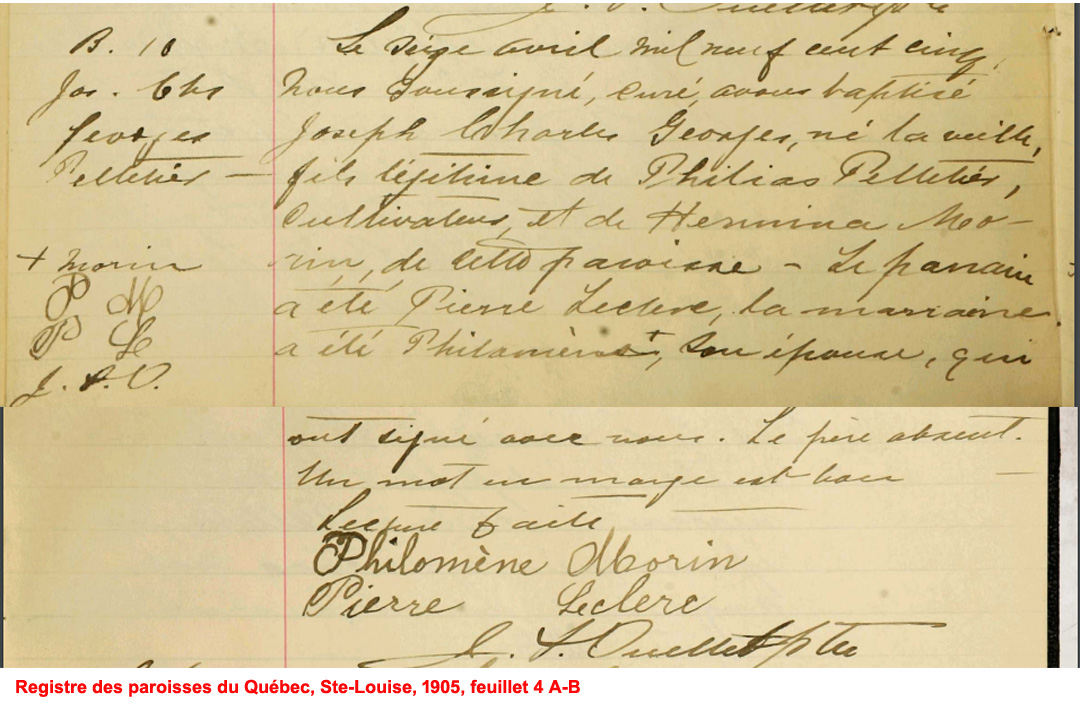 B. 10
Jos. Chs
Georges
Pelletier —
+ Morin
P M
P L
J. S. O.
Le seize avril mil neuf cent cinq,
nous soussigné, curé, avons baptisé
Joseph Charles Georges, né la veille,
fils légitime de Philias Pelletier,
cultivateur, et de Hermina Mo-
rin, de cette paroisse – Le parrain
a été Pierre Leclerc, la marraine
a été Philomène +, son épouse, qui
ont signé avec nous. Le père absent.
Un mot en marge est bon
Lecture faite
Philomène Morin
Pierre Leclerc
J. S. Ouellet ptre
Registre des paroisses du Québec, Ste-Louise, 1905, feuillet 4 A-B